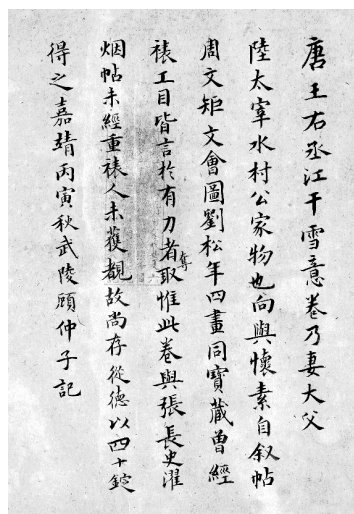 唐王右丞江干雪意卷乃妻大父
陸太宰水村公家物也向與懷素自叙帖
周文矩文會圖劉松年四畫同寶藏曾經
裱工目皆言於有力者奪取惟此卷與張長史濯
烟帖未經重裱人未獲覩故尚存從德以四十錠
得之嘉靖丙寅秋武陵顧仲子記